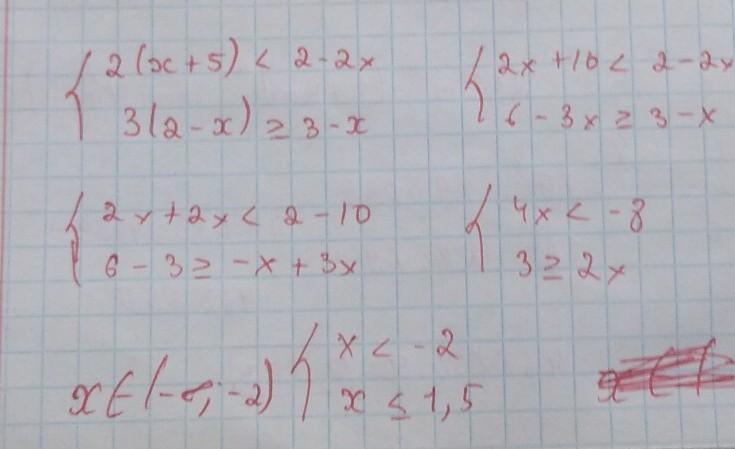 { 2(x+5) < 2-2x
3(2-x) ≥ 3-x
{ 2x+10 < 2-2x
6-3x ≥ 3-x
{ 2x+2x < 2-10
6-3 ≥ -x+3x
{ 4x < -8
3 ≥ 2x
{ x < -2
x ≤ 1,5
x∈(-∞;-2)